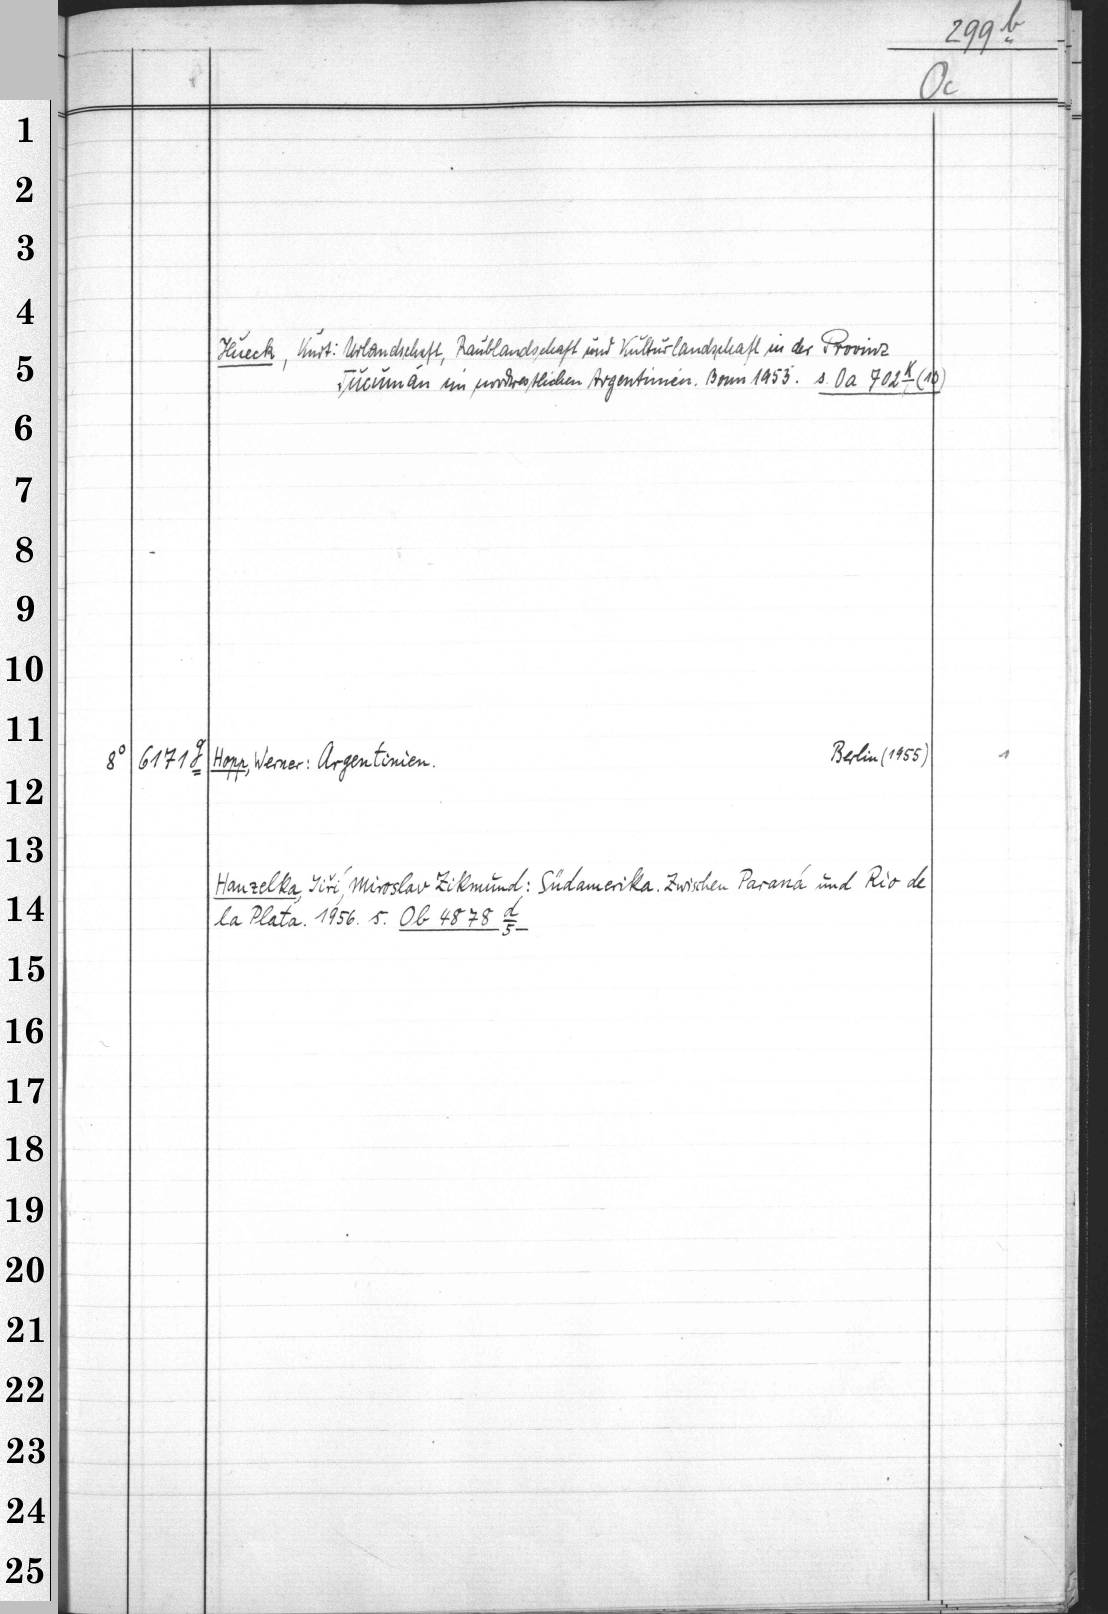 299 b
Oc
1
2
3
4
Hueck, Kurt: Urlandschaft, Raublandschaft und Kulturlandschaft in der Provinz
5
Tucumán im nordwestlichen Argentinien. Bonn 1953. s. Oa 702 K (10)
6
7
8
9
10
11
8° 6171 g Hopp, Werner: Argentinien. Berlin (1955) 1
12
13
Hanzelka, Jiří, Miroslav Zikmund: Südamerika. Zwischen Paraná und Rio de
14
la Plata. 1956. s. Ob 4878 d/5
15
16
17
18
19
20
21
22
23
24
25